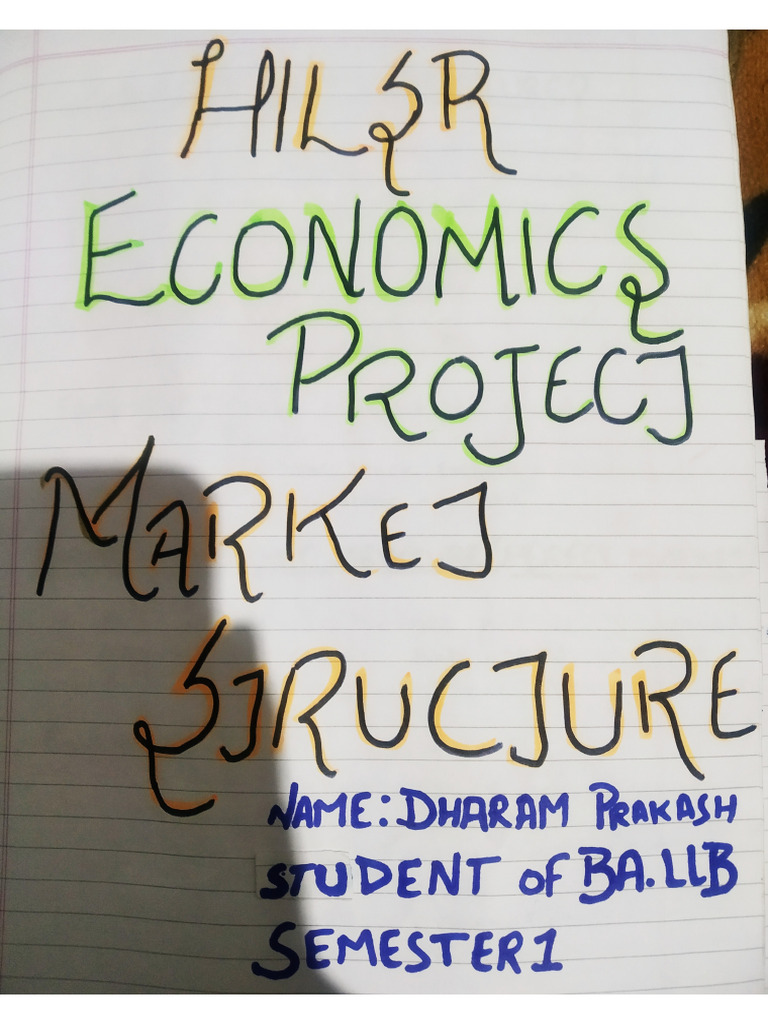 HILSR
ECONOMICS
PROJECT
MARKET
STRUCTURE
NAME: DHARAM PRAKASH
STUDENT OF BA.LLB
SEMESTER 1